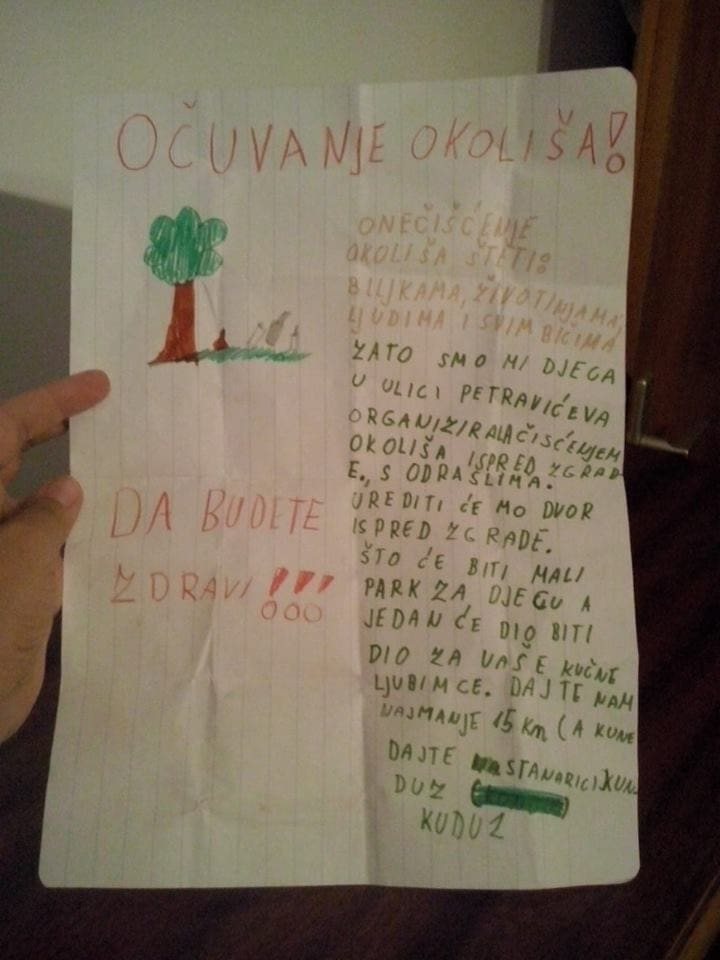 OČUVANJE OKOLIŠA!
ONEČIŠĆENJE
OKOLIŠA ŠTETI:
BILJKAMA, ŽIVOTINJAMA,
LJUDIMA I SVIM BIĆIMA
ZATO SMO MI DJECA
U ULICI PETRAVIĆEVA
ORGANIZIRALA ČIŠĆENJEM
OKOLIŠA ISPRED ZGRAD
E., S ODRAŠLIMA.
UREDITI ĆE MO DVOR
ISPRED ZGRADE.
ŠTO ĆE BITI MALI
PARK ZA DJECU A
JEDAN ĆE DIO BITI
DIO ZA VAŠE KUĆNE
LJUBIMCE. DAJTE NAM
NAJMANJE 15 Kn (A KUNE
DAJTE STANARICI) KUN
DUZ
KUDUZ
DA BUDETE
ZDRAVI!!!